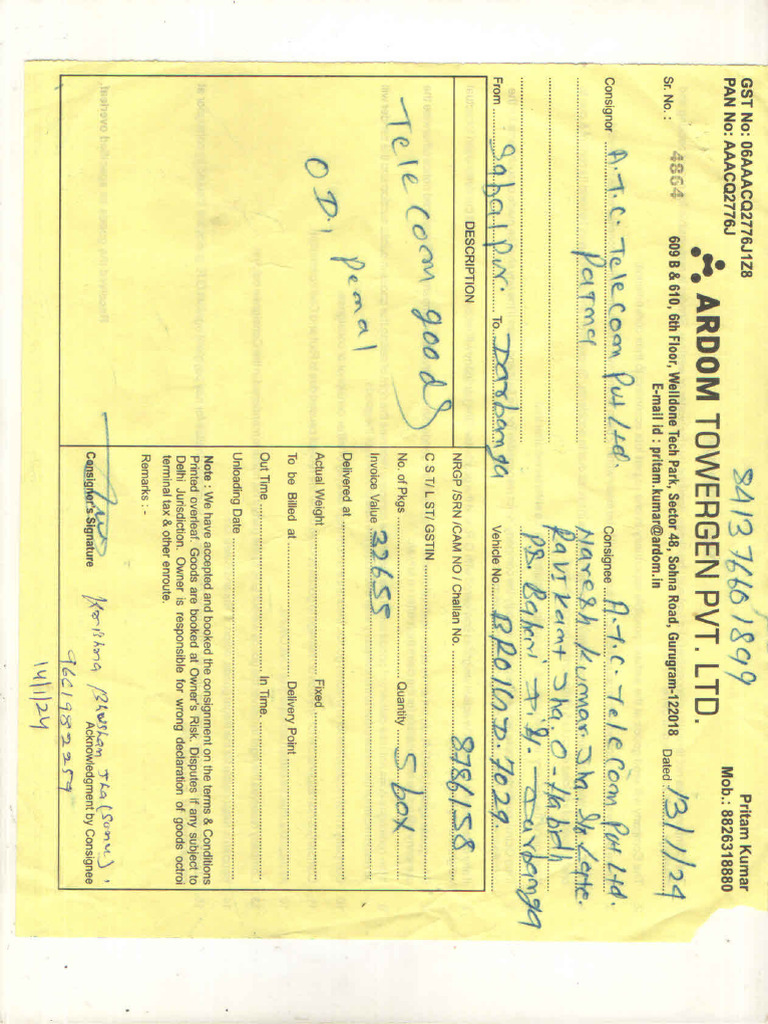 8413 7660 1899
GST No: 06AAACQ2776J1Z8
PAN No: AAACQ2776J
Pritam Kumar
Mob.: 8826318880
ARDOM TOWERGEN PVT. LTD.
609 B & 610, 6th Floor, Welldone Tech Park, Sector 48, Sohna Road, Gurugram-122018
E-mail id : pritam.kumar@ardom.in
Sr. No. : 4864
Dated 13/1/24
Consignor A.T.C. Telecom Pvt Ltd.
Patna
Consignee A.T.C. Telecom Pvt Ltd.
Naresh Kumar Jha S/o Late.
Ravikant Jha, O-Habidh
PS. Baheri Dist. - Darbanga
From Sohalpur. To Darbanga
Vehicle No. BR01GD.7029.
DESCRIPTION
Telecom goods
OD. penal
NRGP /SRN /CAM NO / Challan No. 8786158
C S T/ L ST/ GSTIN
No. of Pkgs Quantity 5 box
Invoice Value 32655
Delivered at
Actual Weight Fixed
To be Billed at Delivery Point
Out Time In Time.
Unloading Date
Note : We have accepted and booked the consignment on the terms & Conditions
Printed overleaf. Goods are booked at Owner's Risk. Disputes if any subject to
Delhi Jurisdiction. Owner is responsible for wrong declaration of goods octroi
terminal tax & other enroute.
Remarks : -
Consignor's Signature
Krishna Bhushan Jha (Sonu),
Acknowledgment by Consignee
9601982259
14/1/24